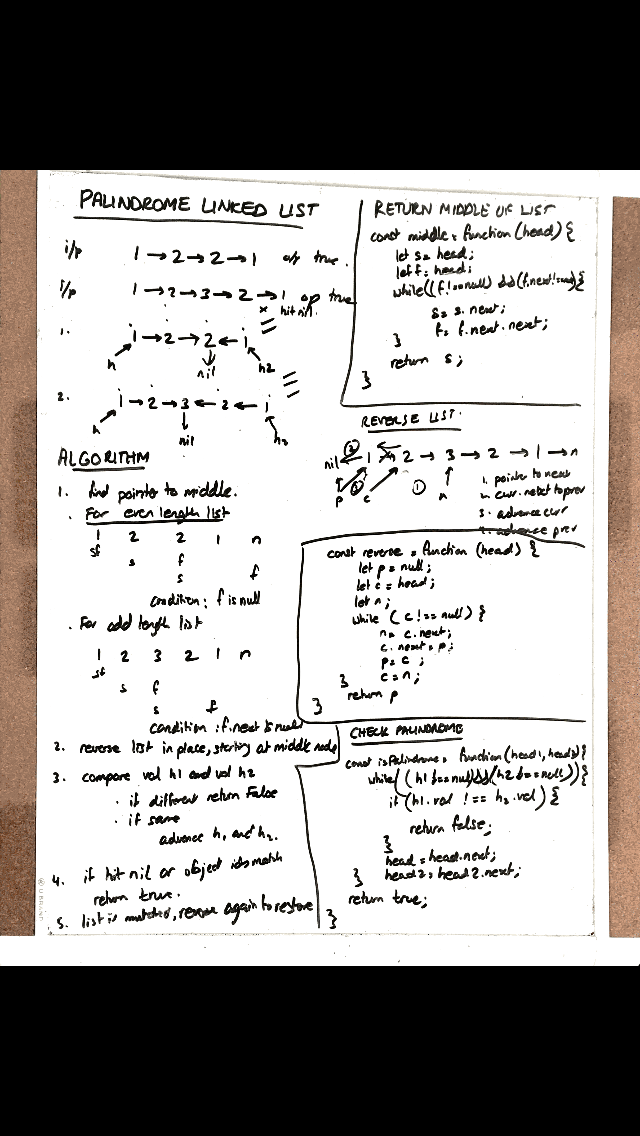 PALINDROME LINKED LIST
i/p 1 → 2 → 2 → 1 o/p true.
I/p 1 → 2 → 3 → 2 → 1 op true
x hit nil.
1. 1 → 2 → 2 ← 1
h nil h2
2. 1 → 2 → 3 ← 2 ← 1
h nil h2
ALGORITHM
1. find pointer to middle.
. For even length list
1 2 2 1 n
sf
s f
s f
condition: f is null
. For odd length list
1 2 3 2 1 n
sf
s f
s f
condition: f.next is null
2. reverse list in place, starting at middle node
3. compare val h1 and val h2
. if different return False
. if same
advance h1 and h2.
4. if hit nil or object ids match
return true.
5. list is mutated, reverse again to restore
RETURN MIDDLE OF LIST
const middle = function (head) {
let s = head;
let f = head;
while ((f !== null) && (f.next !== null) {
s = s.next;
f = f.next.next;
}
return s;
}
REVERSE LIST.
nil ② 1 2 → 3 → 2 → 1 → n
p c ① n
1. pointer to next
2. curr.next to prev
3. advance curr
4. advance prev
const reverse = function (head) {
let p = null;
let c = head;
let n;
while (c !== null) {
n = c.next;
c.next = p;
p = c ;
c = n;
}
return p
}
CHECK PALINDROME
const isPalindrome = function (head1, head2) {
while ( (h1 != null) && (h2 != null)) {
if (h1.val !== h2.val) {
return false;
}
head = head.next;
} head2 = head2.next;
return true;
}